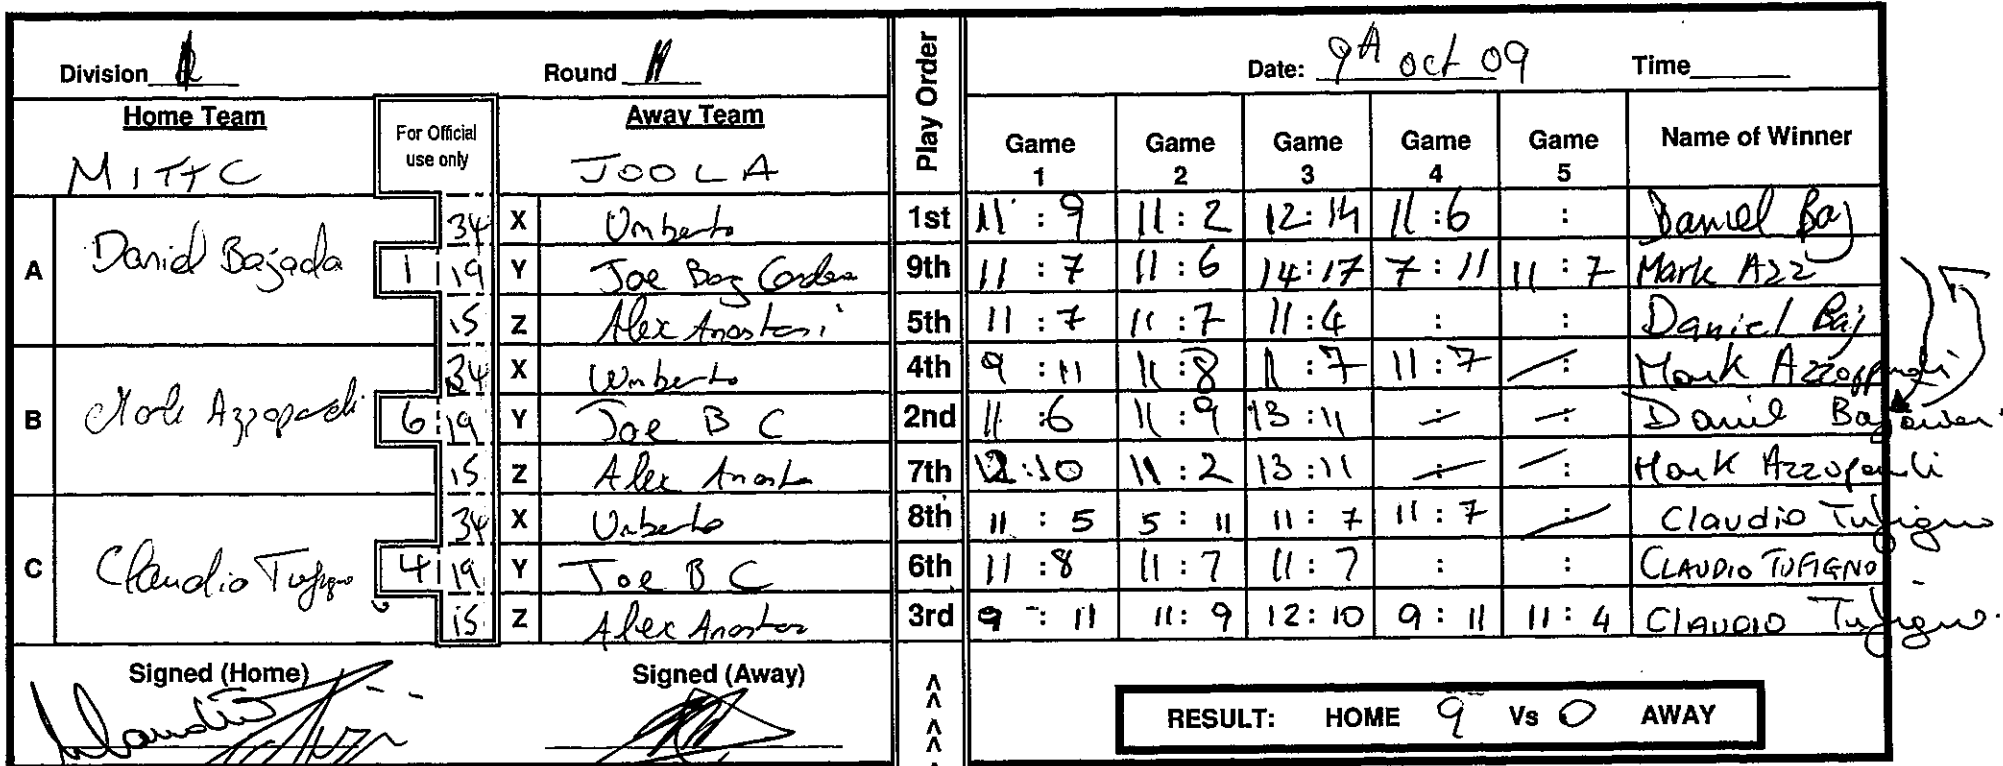 Division Round Date: 9th oct 09 Time
Home Team For Official use only Away Team Play Order Game 1 Game 2 Game 3 Game 4 Game 5 Name of Winner
MITTC JOOLA
A Daniel Bajada 1
34 X Umberto 1st 11 : 9 11 : 2 12 : 14 11 : 6 : Daniel Baj
19 Y Joe Baj Cordina 9th 11 : 7 11 : 6 14 : 17 7 : 11 11 : 7 Mark Azz
15 Z Alex Anastasi 5th 11 : 7 11 : 7 11 : 4 : : Daniel Baj
B Mark Azzopardi 6
34 X Umberto 4th 9 : 11 11 : 8 11 : 7 11 : 7 : Mark Azzoppardi
19 Y Joe B C 2nd 11 : 6 11 : 9 13 : 11 : : Daniel Baj
15 Z Alex Anasta 7th 12 : 10 11 : 2 13 : 11 : : Mark Azzopardi
C Claudio Tufigno 4
34 X Umberto 8th 11 : 5 5 : 11 11 : 7 11 : 7 : Claudio Tufigno
19 Y Joe B C 6th 11 : 8 11 : 7 11 : 7 : : CLAUDIO TUFIGNO
15 Z Alex Anastasi 3rd 9 : 11 11 : 9 12 : 10 9 : 11 11 : 4 CLAUDIO Tufigno.
Signed (Home) Signed (Away) < < < <
RESULT: HOME 9 Vs 0 AWAY